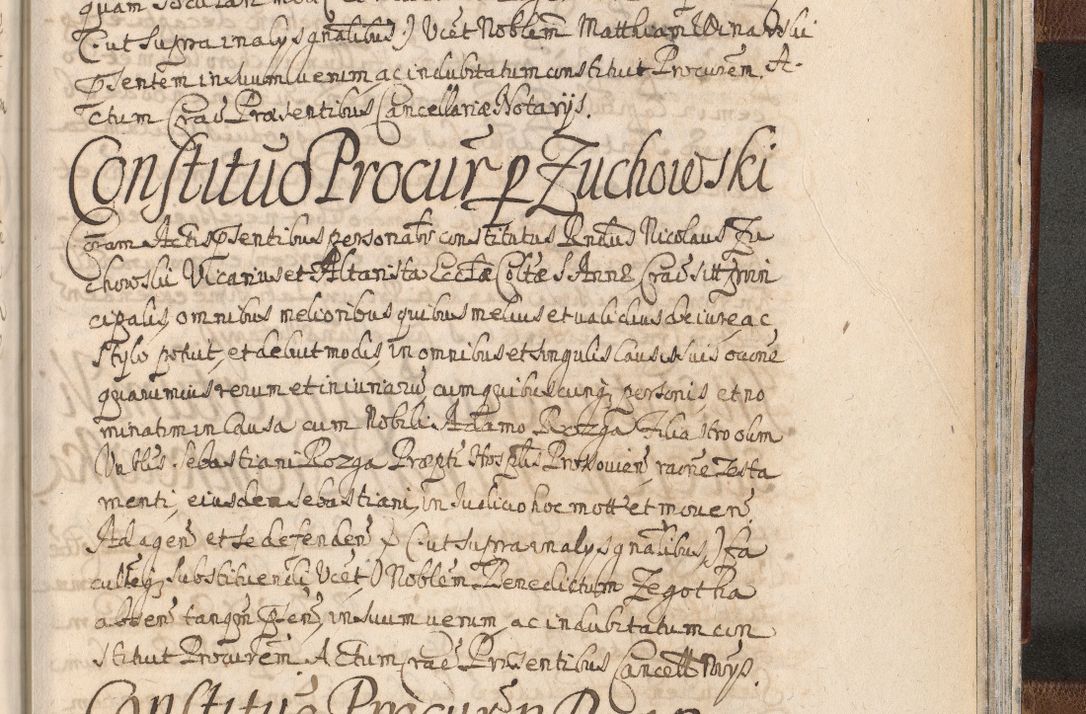 (: ut supra in alys gnalibus :) Ucet Noblem Matthiam Winarski
psentem in suum verum, ac indubitatum constituit Procurem. A-
ctum Crac Praesentibus Cancellariae Notarijs.
Constitutio Procur p Zuchowski
Coram Actis psentibus personalr constitutus Rndus Nicolaus Zu
chowski Vicarius et Altarista Ecclae Coltae S Annae Crac sitt prin
cipalis, omnibus melioribus quibus melius et validius de iure, ac
stylo potuit, et debuit modis, in omnibus et singulis causis suis oraone
quarumvis rerum et iniuriaru, cum quibuscunq personis, et no
minatim in Causa cum Nobili Adamo Rozga Filiastro olim
Nobilis Sebastiani Rozga Praepti Hosplis Proszovien, raone Testa
menti, eiusdem Sebastiani, in Iudicio hoc mott et moven.
Ad agen et se defenden p (: ut supra in alys gnalibus,:) fa
cultteq substituendi Ucet :) Noblem Benedictum Zegotha
absen tanqn psen, in suum verum, ac indubitatum con
stituit Procurem. Actum Crac Praesentibus Cancell Norijs.
Constitutio Procuren